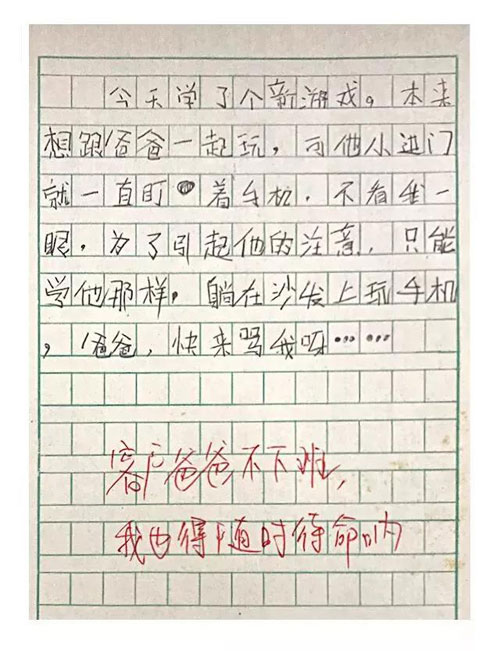 今天学了个新游戏。本来
想跟爸爸一起玩，可他从进门
就一直盯着手机，不看我一
眼，为了引起他的注意，只能
学他那样，躺在沙发上玩手机
，爸爸，快来骂我呀……
客户爸爸不下班，
我也得随时待命呐